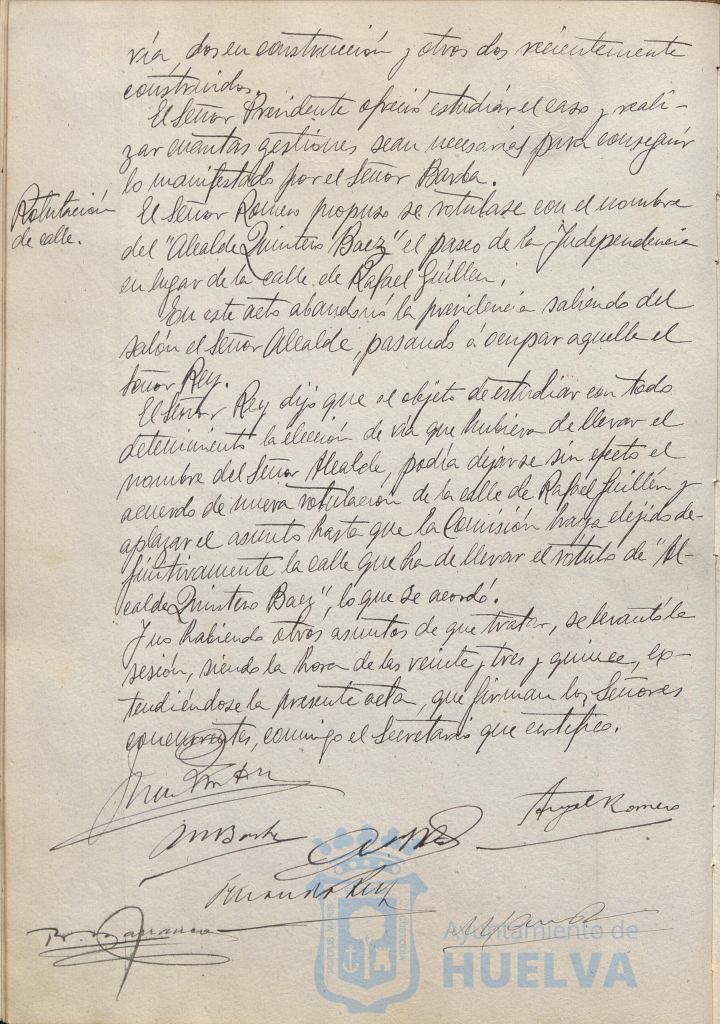 vía, dos en construcción y otros dos recientemente
construidos.
El Señor Presidente ofreció estudiar el caso y reali-
zar cuantas gestiones sean necesarias para conseguir
lo manifestado por el Señor Barba.
Rotulación
de calle.
El Señor Romero propuso se rotulase con el nombre
del "Alcalde Quintero Baez" el paseo de la Independencia
en lugar de la calle de Rafael Guillén.
En este acto abandonó la presidencia saliendo del
salón el Señor Alcalde, pasando á ocupar aquella el
Señor Rey.
El Señor Rey dijo que al objeto de estudiar con todo
detenimiento la elección de vía que hubiera de llevar el
nombre del Señor Alcalde, podía dejarse sin efecto el
acuerdo de nueva rotulación de la calle de Rafael Guillén y
aplazar el asunto hasta que la Comisión haya elejido de-
finitivamente la calle que ha de llevar el rótulo de "Al-
calde Quintero Baez", lo que se acordó.
Y no habiendo otros asuntos de que tratar, se levantó la
sesión, siendo la hora de las veinte y tres y quince, ex-
tendiéndose la presente acta, que firman los Señores
concurrentes, conmigo el Secretario que certifico.
Angel Romero
M Barba
Fernando Rey
Ayuntamiento de
HUELVA
PORTUS MARIS
CUSTODIA